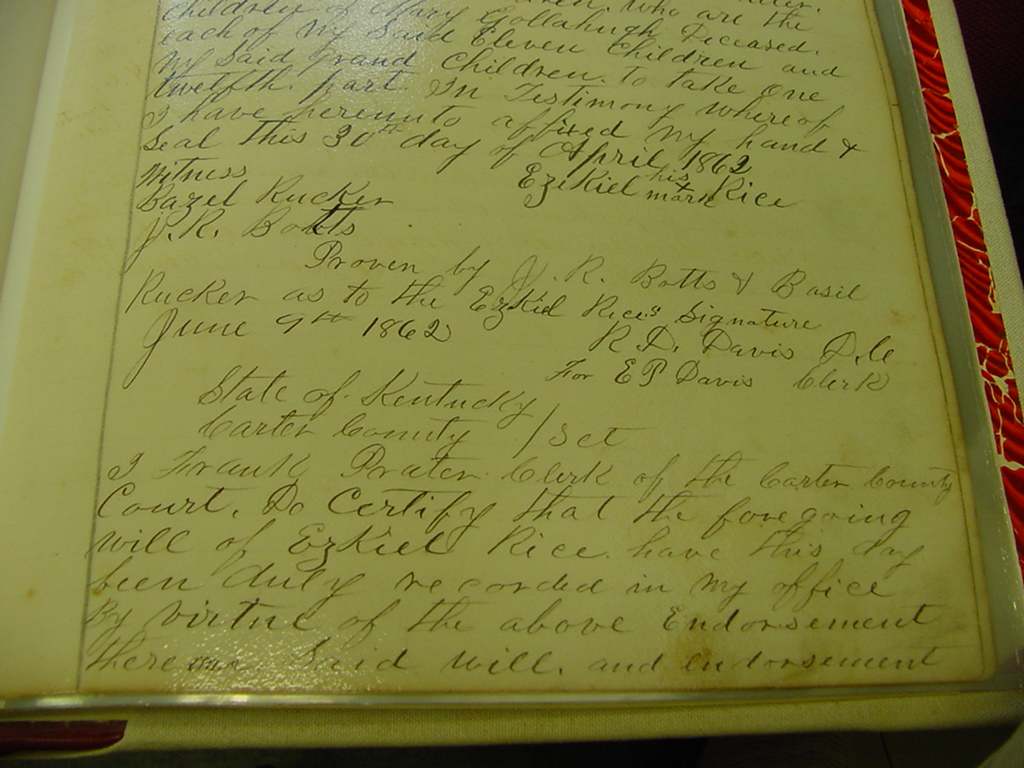 children of Mary who are the
each of my Said Eleven Children and
my Said grand Children. to take one
twelfth part. In Testimony whereof
I have hereunto affixed my hand &
Seal this 30th day of April 1862
Witness Ezekiel his mark Rice
Bazel Rucker
J. R. Botts
Proven by J. R. Botts & Basil
Rucker as to the Ezkiel Rice's Signature
June 9th 1862 R. D. Davis D.C
For E P Davis Clerk
State of Kentucky
Carter County / Sct
I Frank Prater Clerk of the Carter County
Court, Do Certify that the foregoing
will of Ezkiel Rice. have this day
been duly recorded in my office
By virtue of the above Endorsement
thereon. Said will, and endorsement